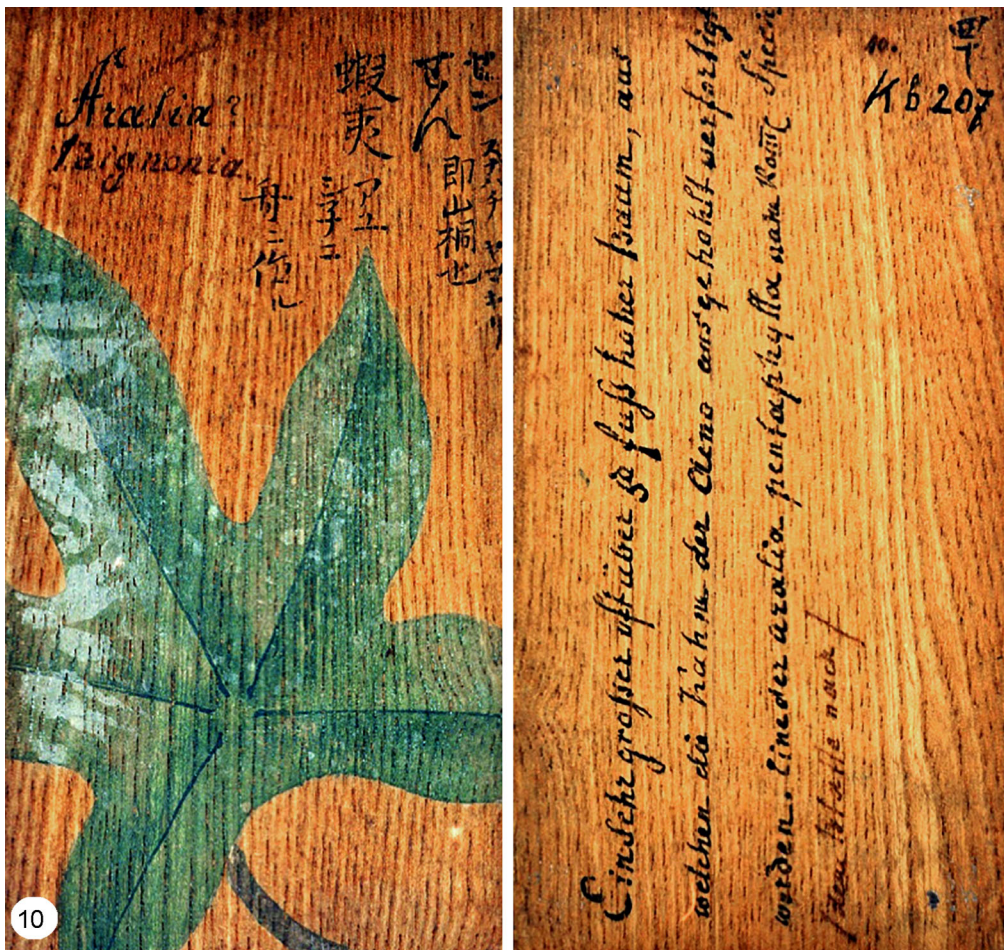 Aralia?
Bignonia.
せん
即山桐也
蝦夷
舟ニ作ル
10
Ein sehr grosser oft über fuss hoher Baum, aus
welchen die Kähne der Aeino ausgehohlt verfertigt
werden. Eine der aralia pentaphylla nahe Speci
dem Blatte nach
10.
Kb 207